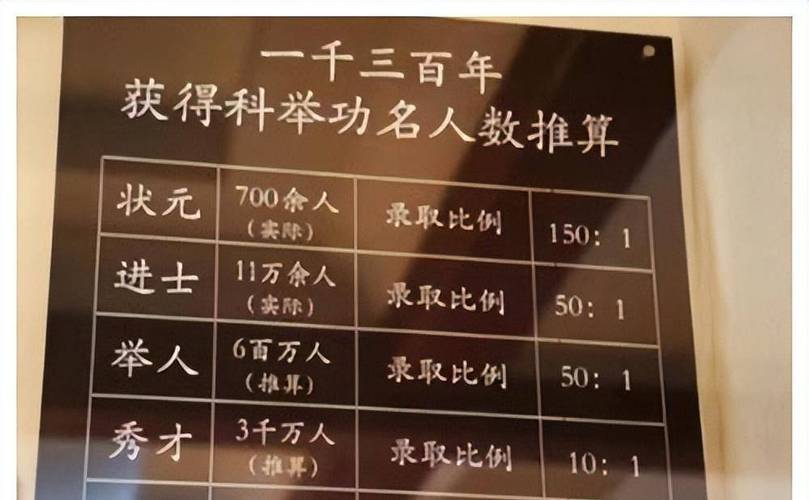 一千三百年
获得科举功名人数推算
状元 700余人 录取比例 150：1
(实际)
进士 11万余人 录取比例 50：1
(实际)
举人 6百万人 录取比例 50：1
(推算)
秀才 3千万人 录取比例 10：1
(推算)